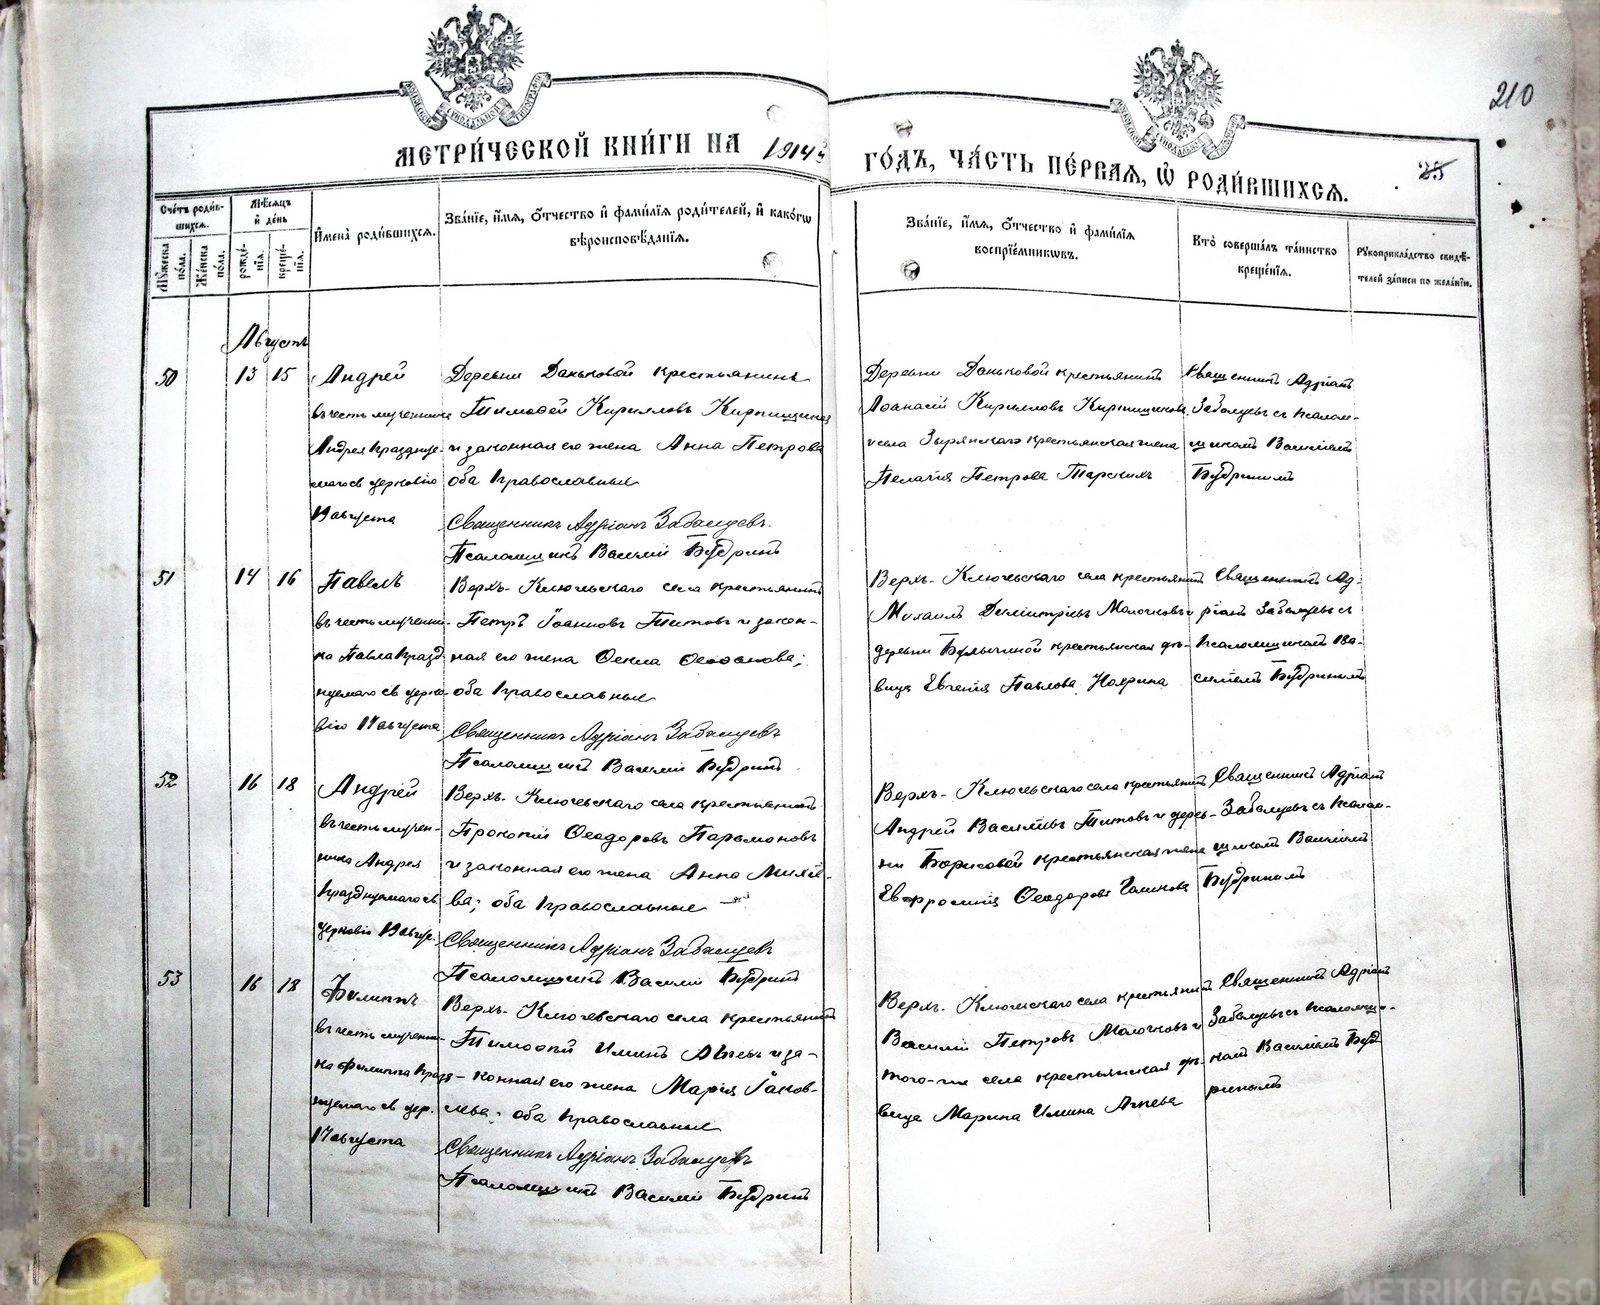 210
МЕТРИ́ЧЕСКОЙ КНИ́ГИ НА 1914 й
ГО́ДЪ, ЧА́СТЬ ПЕ́РВАѦ, Ѿ РОДИ́ВШИХСѦ.
25
Сче́тъ роди́вшихся.
Мꙋ́жеска по́ла.
Же́нска по́ла.
Мѣ́сяцъ и де́нь
рожде́нїѧ.
креще́нїѧ.
И҆мена̀ роди́вшихсѧ.
Зва́нїе, и҆́мѧ, ѻ҆́тчество и҆ фами́лїѧ роди́телей, и҆ како́гѡ
вѣроисповѣ́данїѧ.
Зва́нїе, и҆́мѧ, ѻ҆́тчество и҆ фами́лїѧ
воспрїе́мникѡвъ.
Кто̀ соверша́лъ та́инство
креще́нїѧ.
Рꙋкоприкла́дство свидѣ́-
телей за́писи по жела́нїю.
Августъ
50
13 15
Андрей
въ честь мученика
Андрея празднуе-
маго св церковію
19 августа
Деревни Даньковой крестьянинъ
Тимофей Кирилловъ Кирпищиковъ
и законная его жена Анна Петрова
оба православные
Священникъ Адріанъ
Псаломщикъ Василій Будринъ
Деревни Даньковой крестьянинъ
Аѳанасій Кирилловъ Кирпищиковъ
и села Зырянскаго крестьянская жена
Пелагія Петрова Тарскихъ
Священникъ Адріанъ
съ псалом-
щикомъ Василіемъ
Будринымъ
51
14 16
Павелъ
въ честь мучени-
ка Павла празд-
нуемаго св церко-
вію 17 августа
Верхъ-Ключевскаго села крестьянинъ
Петръ Іоанновъ Титовъ и закон-
ная его жена Ѳекла
оба православные
Священникъ Адріанъ
Псаломщикъ Василій Будринъ
Верхъ-Ключевскаго села крестьянинъ
Михаилъ Димитріевъ Молочковъ и
деревни крестьянская дѣ-
вица Евгенія Павлова Нохрина
Священникъ Ад-
ріанъ съ
псаломщикомъ Ва-
силіемъ Будринымъ
52
16 18
Андрей
въ честь мучен-
ника Андрея
празднуемаго св
церковію 19 авгус.
Верхъ-Ключевскаго села крестьянинъ
Прокопій Ѳеодоровъ Парамоновъ
и законная его жена Анна
ва; оба православные
Священникъ Адріанъ
Псаломщикъ Василій Будринъ
Верхъ-Ключевскаго села крестьянинъ
Андрей Василіевъ Титовъ и дерев-
ни Борисовой крестьянская жена
Евфросинія Ѳеодорова
Священникъ Адріанъ
съ псалом-
щикомъ Василіемъ
Будринымъ
53
16 18
Филиппъ
въ честь мучени-
ка Филиппа празд-
нуемаго св цер.
17 августа
Верхъ-Ключевскаго села крестьянинъ
Тимофей и за-
конная его жена Марія
оба православные
Священникъ Адріанъ
Псаломщикъ Василій Будринъ
Верхъ-Ключевскаго села крестьянинъ
Василій Петровъ Молочковъ и
того-же села крестьянская дѣ-
вица Марина
Священникъ Адріанъ
съ псаломщи-
комъ Василіемъ Буд-
ринымъ
METRIKI.GASO-URAL.RU
METRIKI.GASO